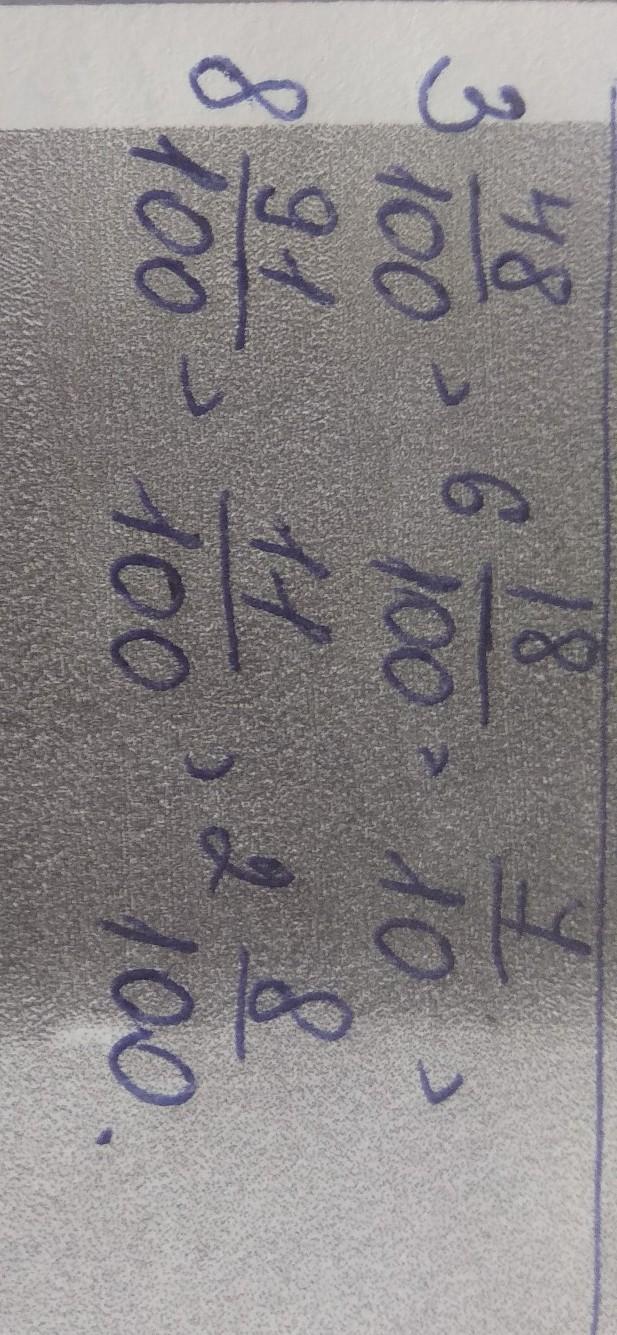 3 48/100, 6 18/100, 4/10,
8 91/100, 11/100, 2 8/100.